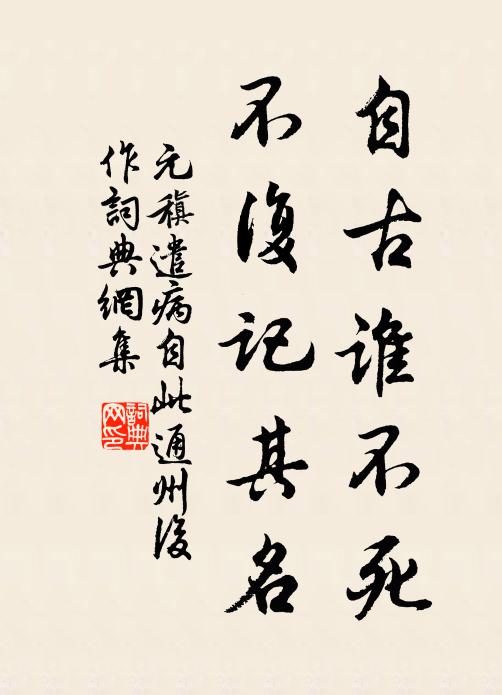 自古誰不死
不復記其名
元稹遣病自此通州後
作詞典網集
詞典
网印